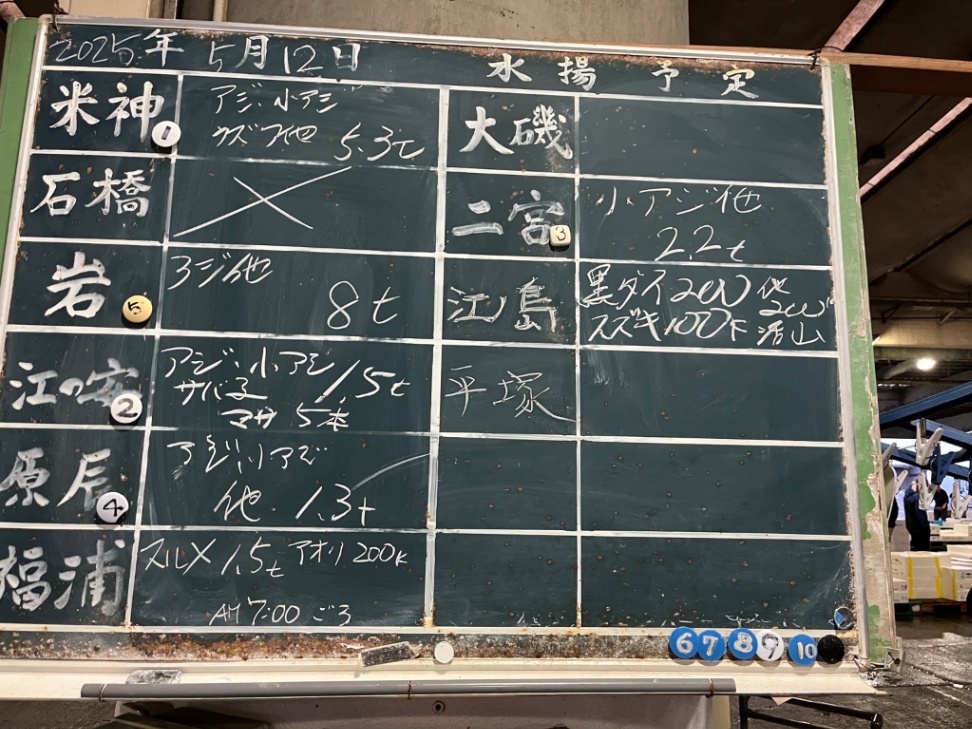 2025年 5月12日
水揚予定
米神
1
アジ、小アジ
カズフ他 5.3t
石橋
×
岩
5
アジ他
8t
江の安
2
アジ、小アジ
サバ子 1.5t
マサ 5本
原辰
4
アジ、小アジ
他 1.3t
福浦
スルメ 1.5t アオリ200K
AM 7:00 ごろ
大磯
二宮
3
小アジ他
2.2t
江ノ島
黒ダイ200 他
スズキ100下 活山
平塚
6 7 8 9 10